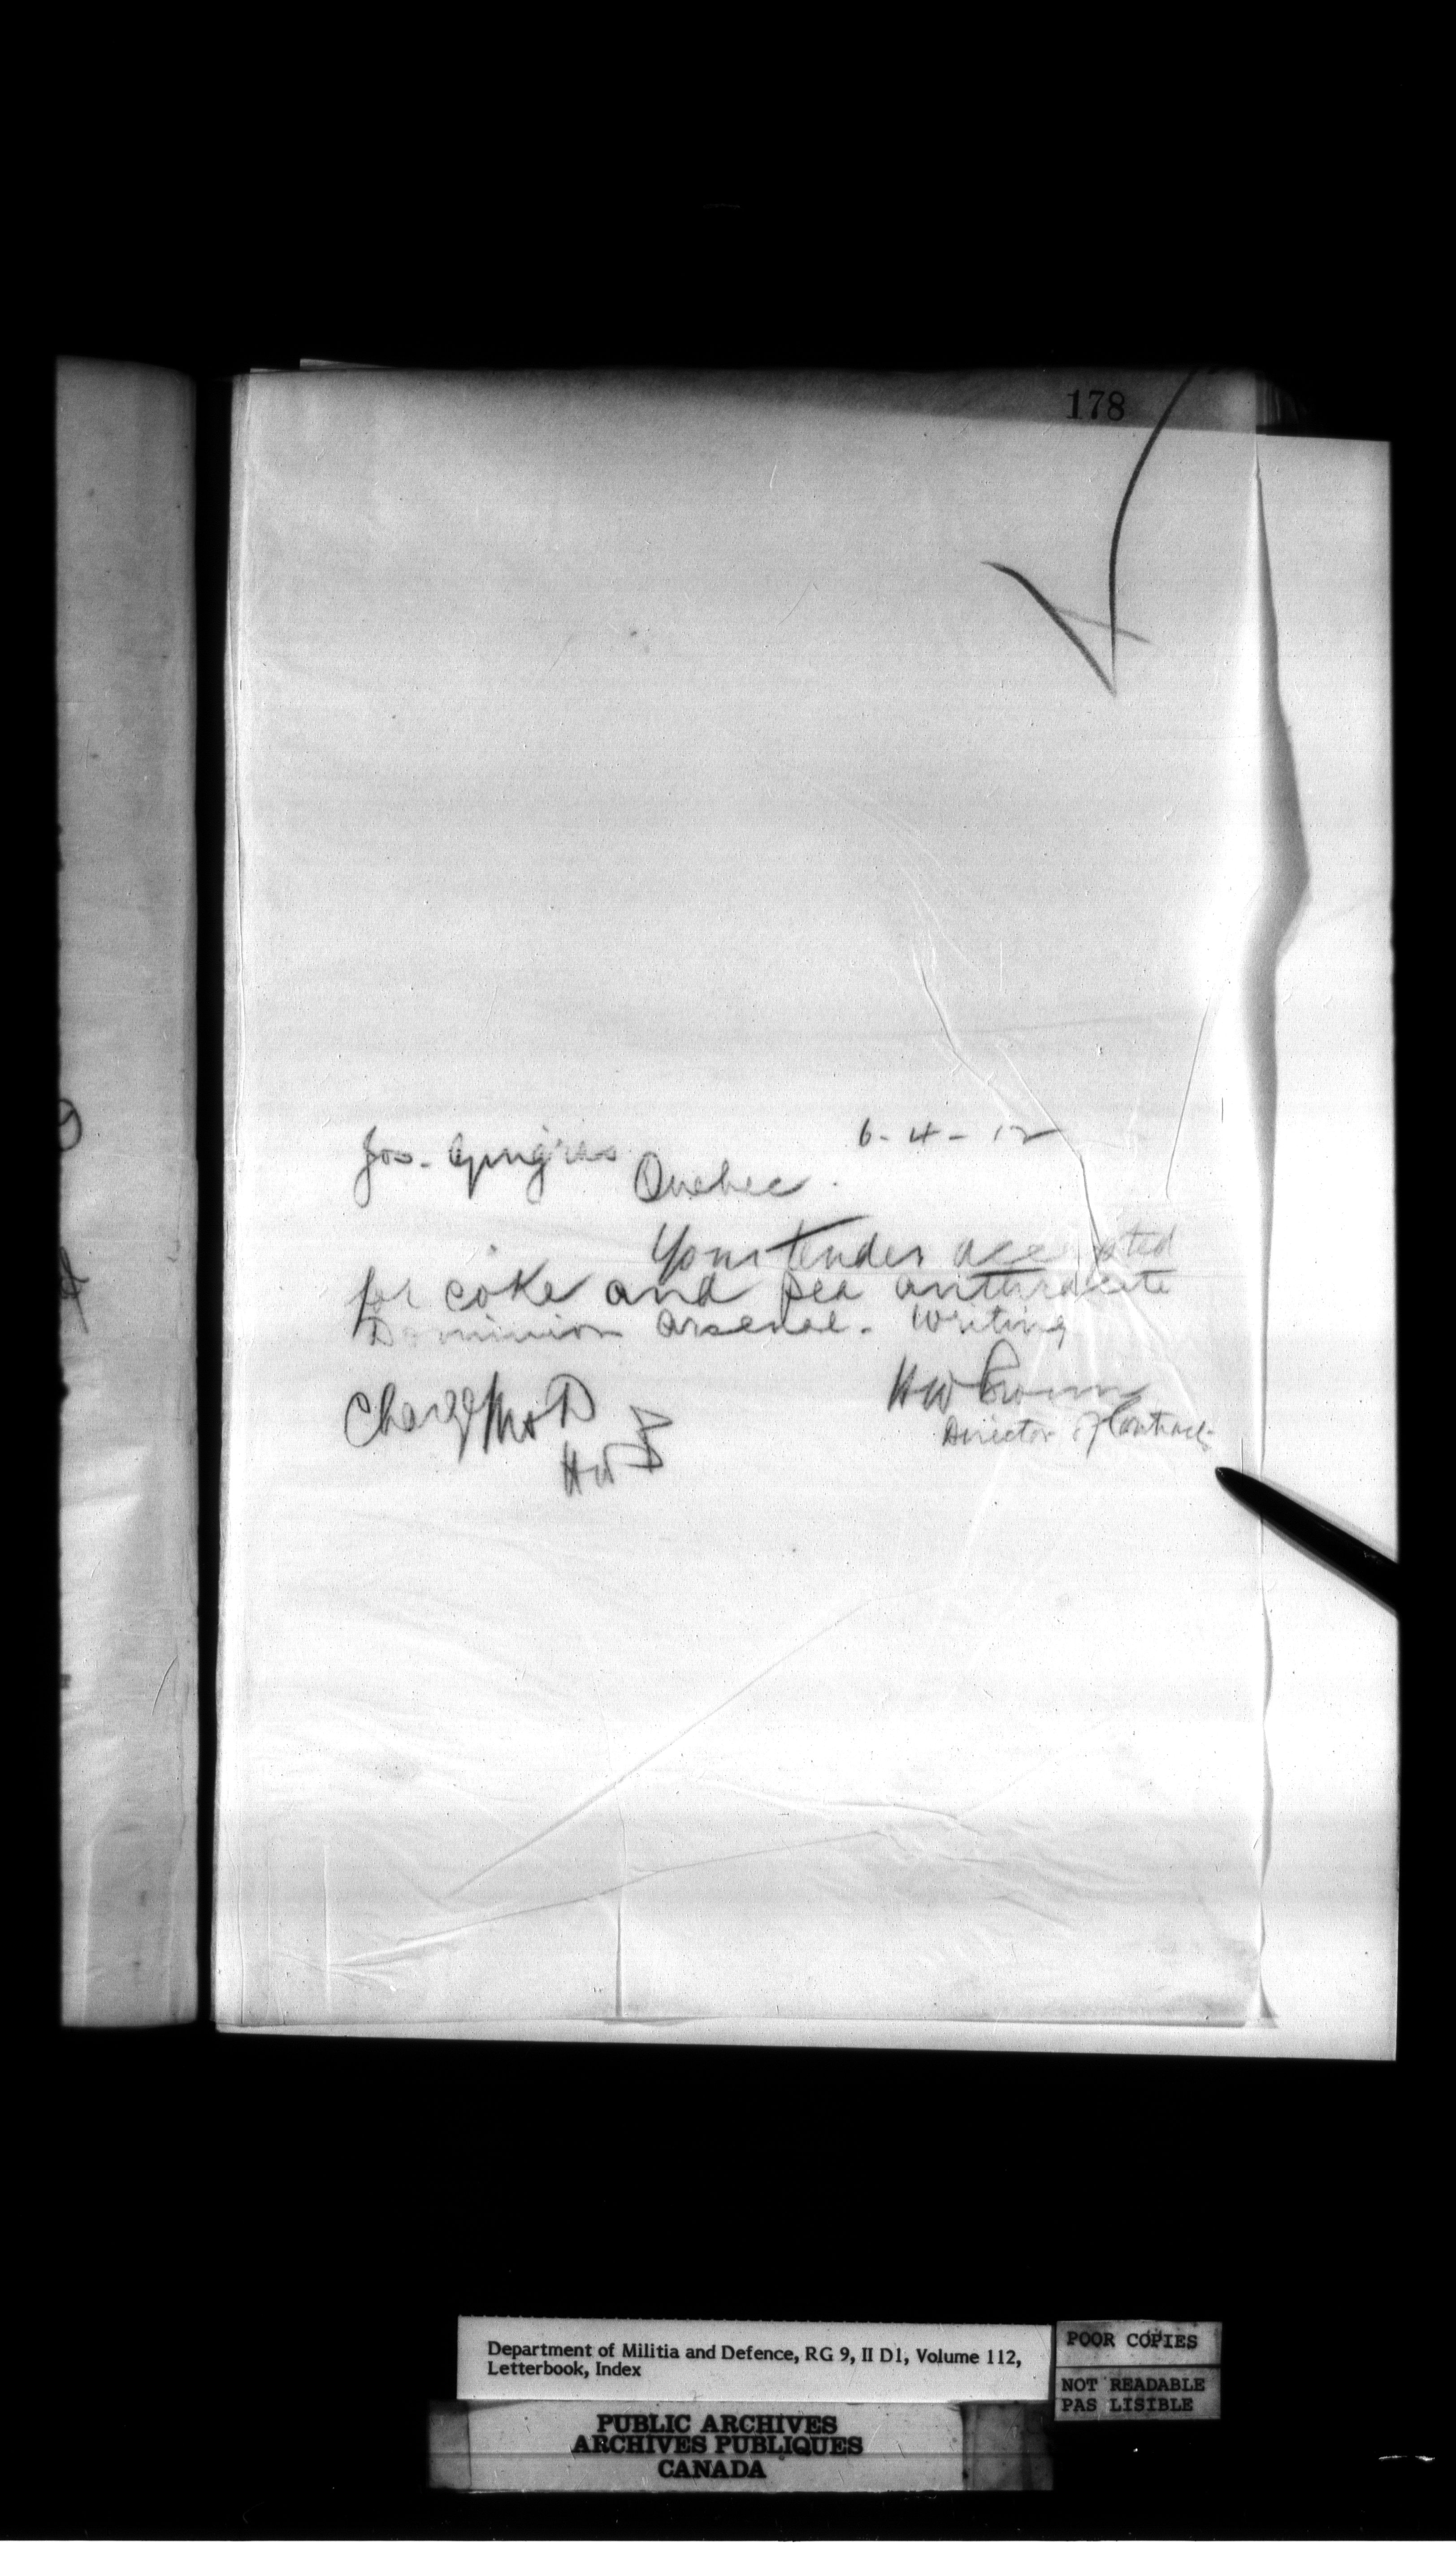 178
6-4-12
Jos. Gingras
Quebec.
Your tender accepted
for coke and pea anthracite
Dominion Arsenal. Writing
HW Brown
Director of Contracts
Charge M & D
HWB
Department of Militia and Defence, RG 9, II D1, Volume 112,
Letterbook, Index
POOR COPIES
NOT READABLE
PAS LISIBLE
PUBLIC ARCHIVES
ARCHIVES PUBLIQUES
CANADA